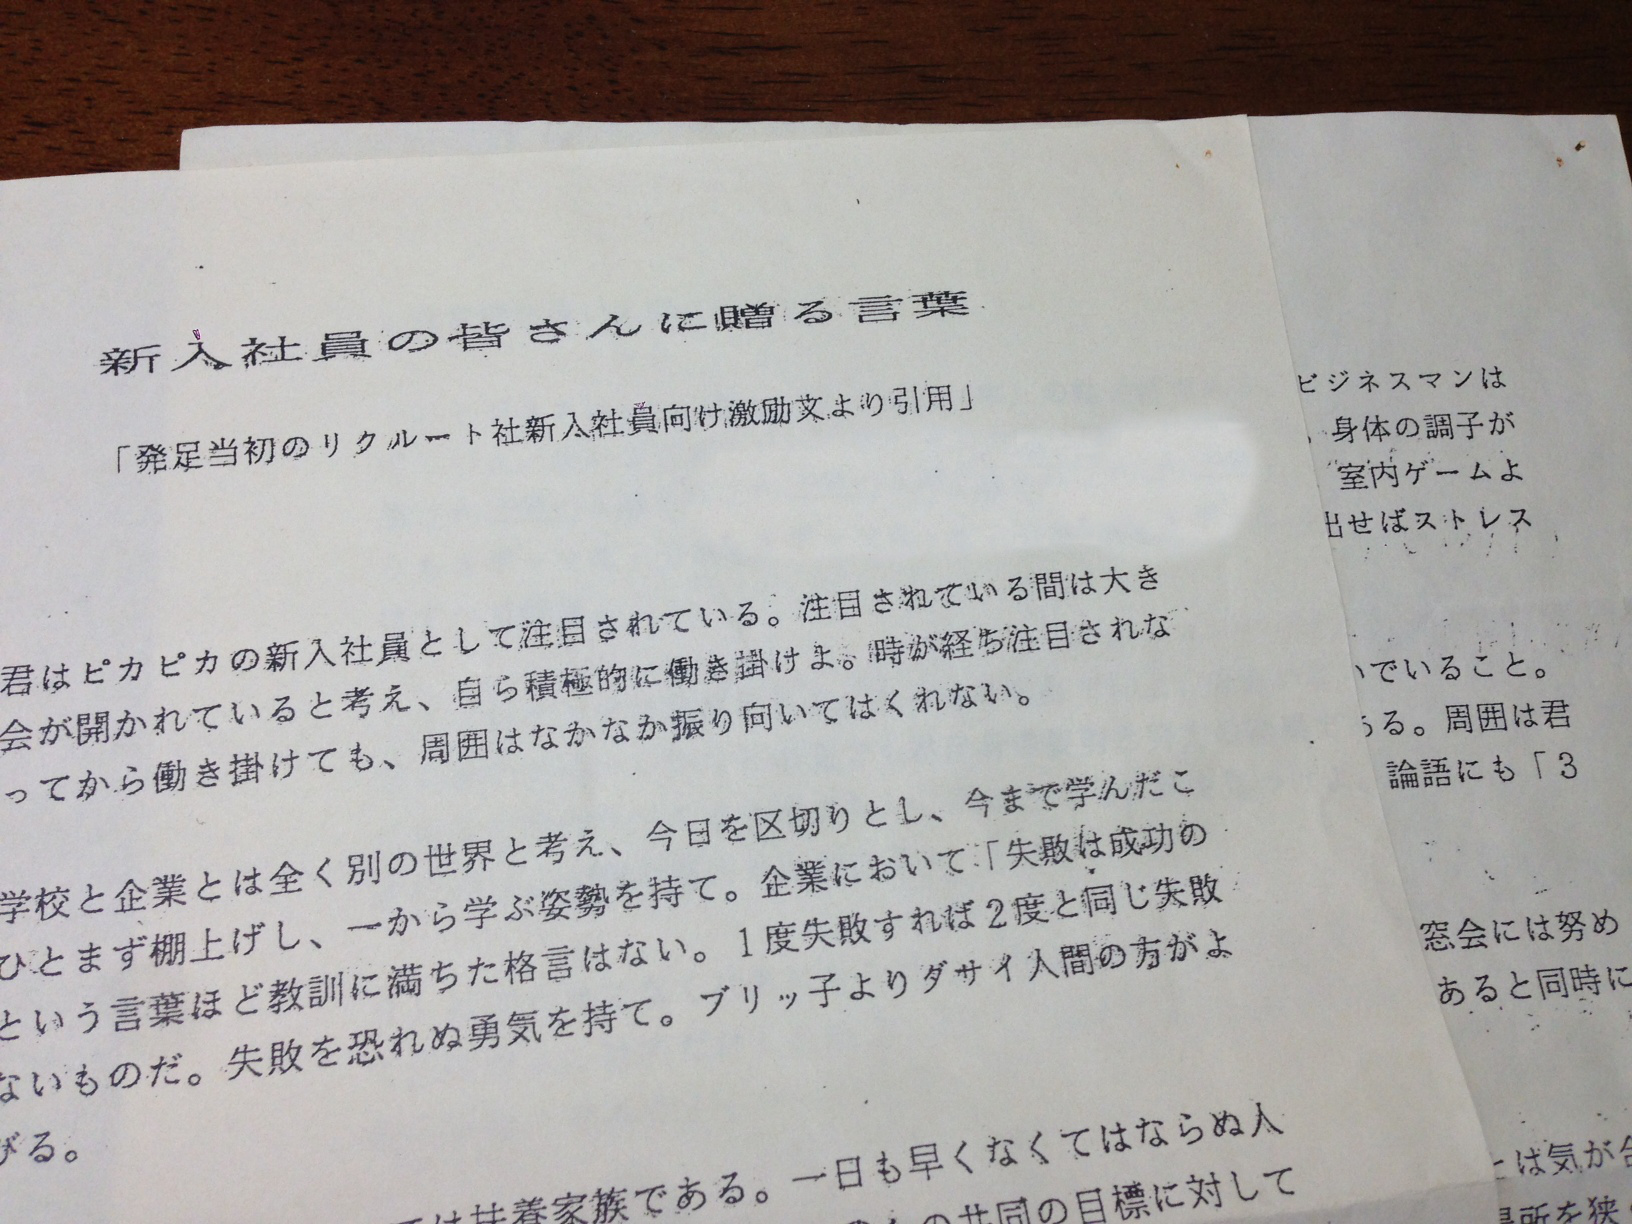 新入社員の皆さんに贈る言葉
「発足当初のリクルート社新入社員向け激励文より引用」
君はピカピカの新入社員として注目されている。注目されている間は大き
会が開かれていると考え、自ら積極的に働き掛けよ。時が経ち注目されな
ってから働き掛けても、周囲はなかなか振り向いてはくれない。
学校と企業とは全く別の世界と考え、今日を区切りとし、今まで学んだこ
ひとまず棚上げし、一から学ぶ姿勢を持て。企業において「失敗は成功の
という言葉ほど教訓に満ちた格言はない。1度失敗すれば2度と同じ失敗
ないものだ。失敗を恐れぬ勇気を持て。ブリッ子よりダサイ人間の方がよ
びる。
ては扶養家族である。一日も早くなくてはならぬ人
の共同の目標に対して
ビジネスマンは
、身体の調子が
室内ゲームよ
出せばストレス
いでいること。
ある。周囲は君
論語にも「3
窓会には努め
あると同時に
とは気が合
場所を狭